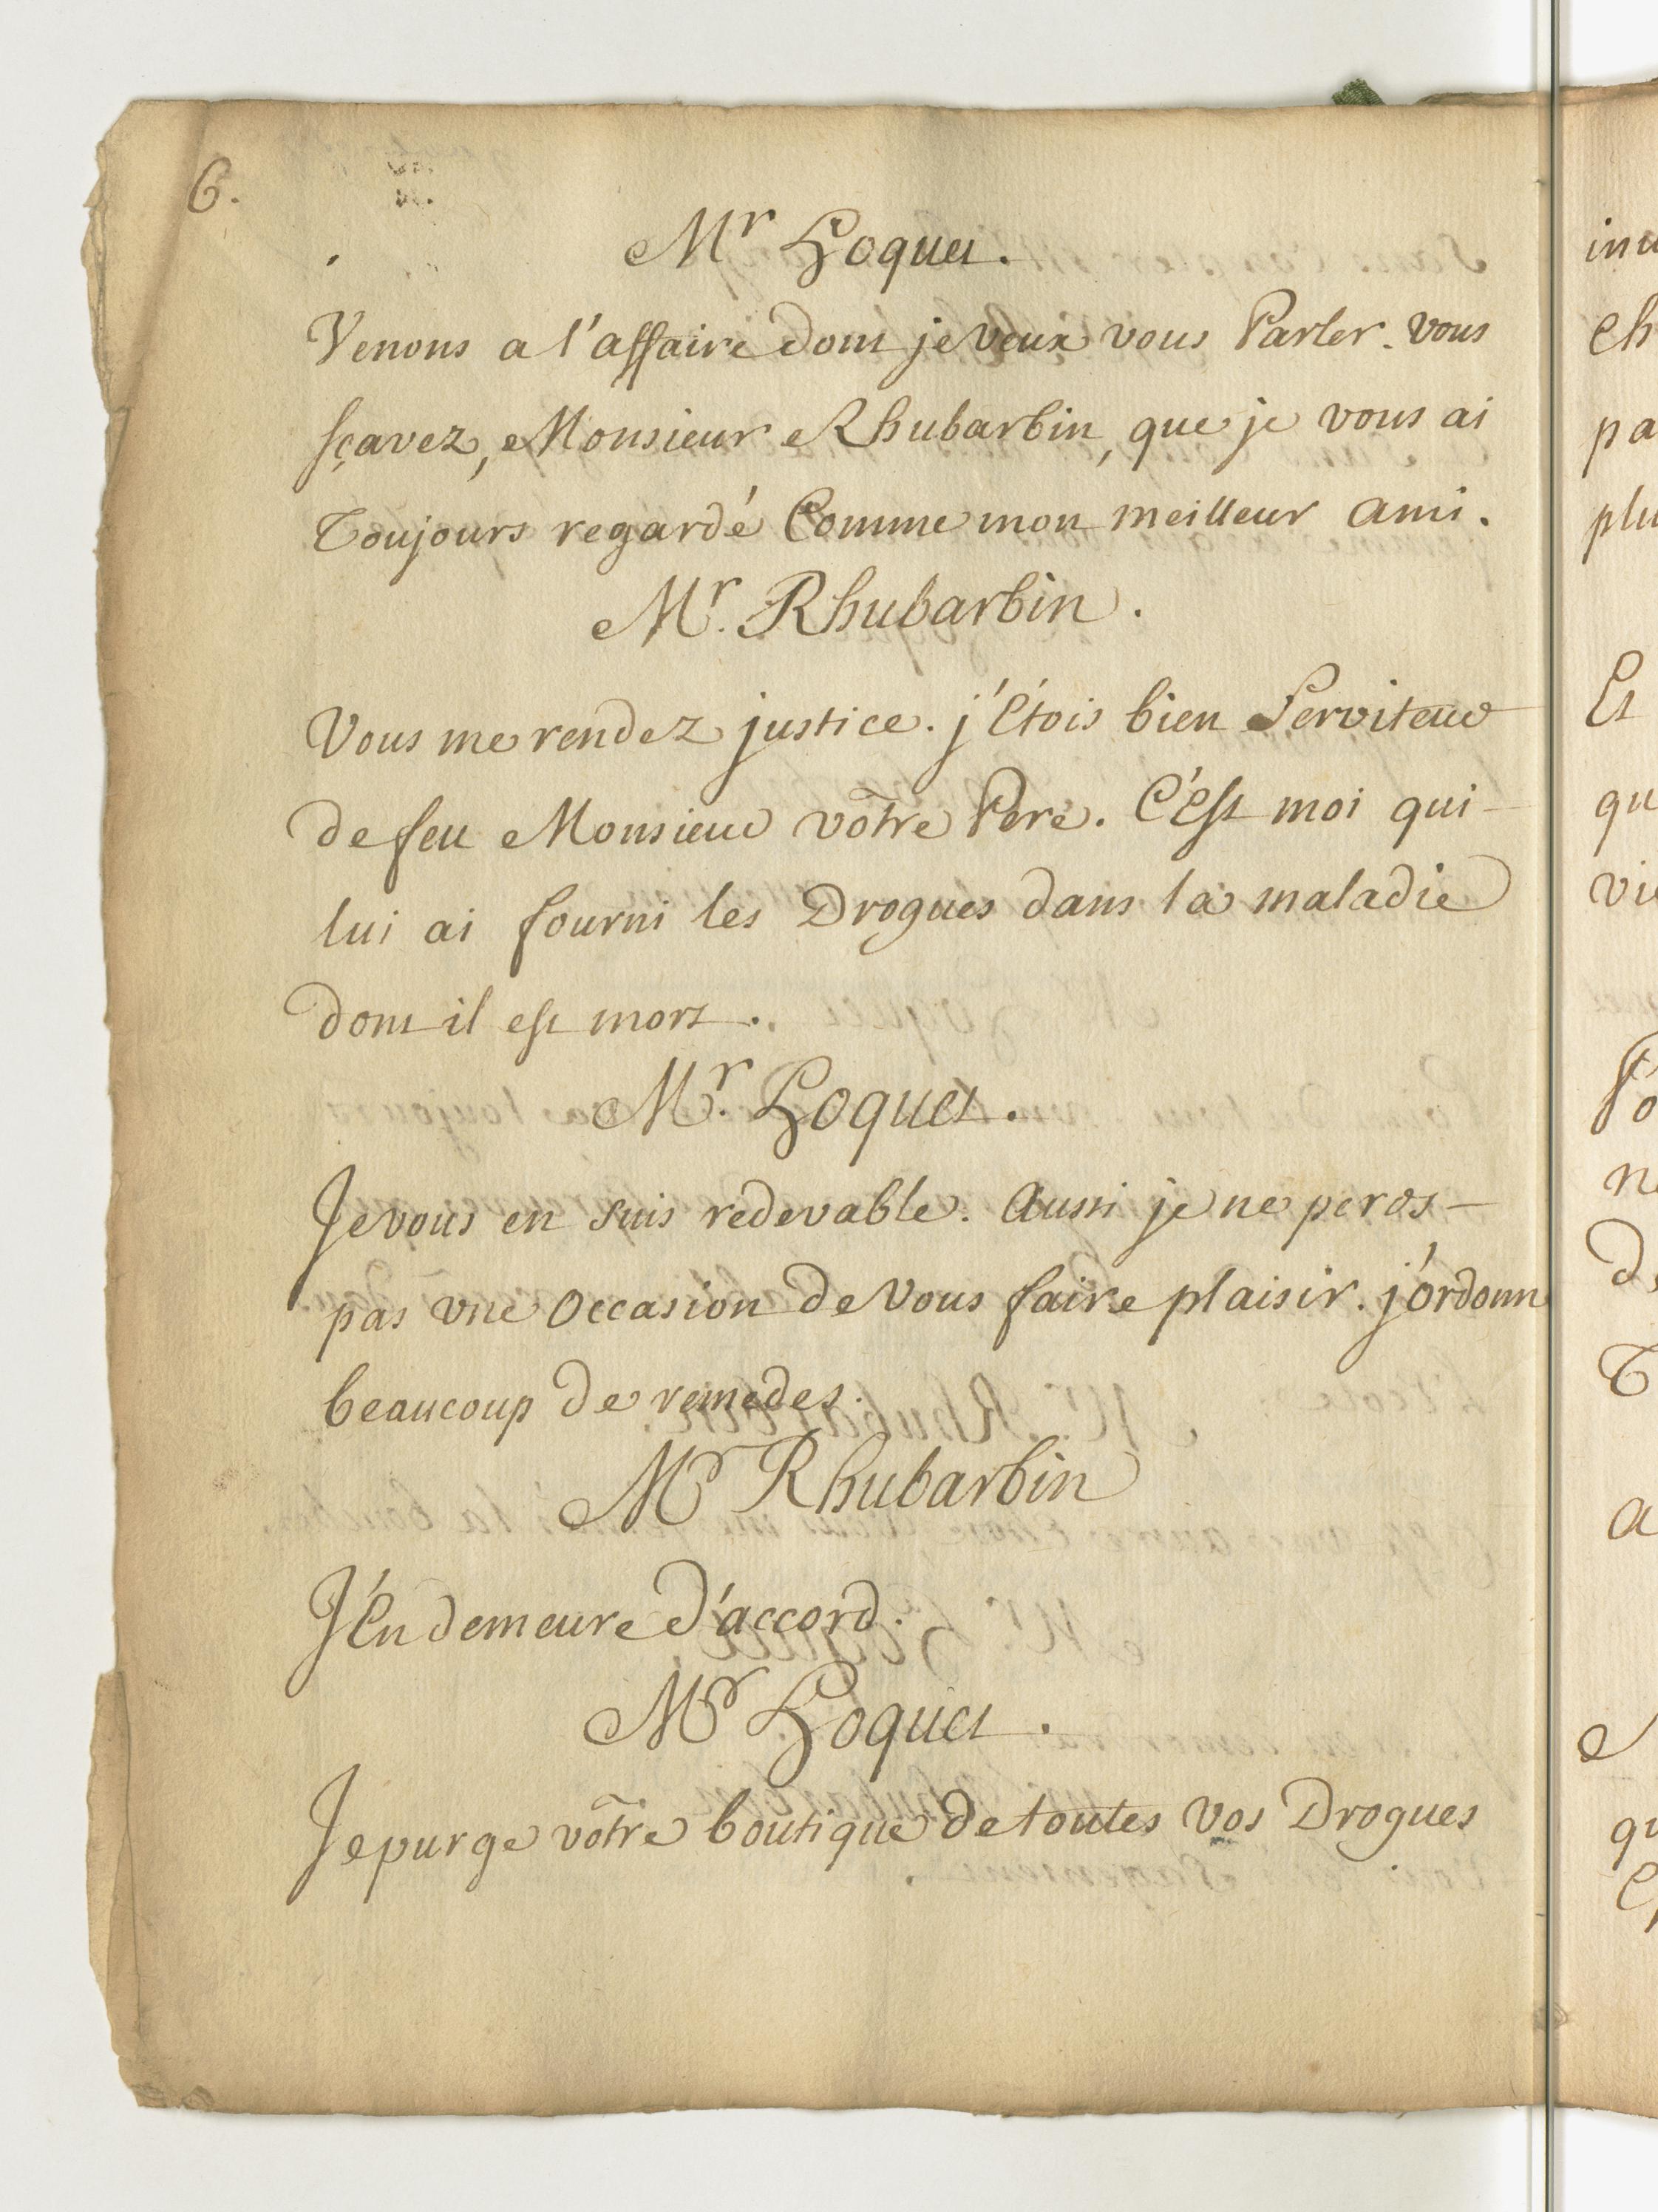 6.
Mr Hoquet.
Venons a l'affaire dont je veux vous Parler. vous
sçavez, Monsieur Rhubarbin, que je vous ai
Toujours regardé Comme mon meilleur ami.
Mr. Rhubarbin.
Vous me rendez justice. j'Étois bien Serviteur
de feu Monsieur vôtre Pere. C'Est moi qui
lui ai fourni les Drogues dans la maladie
dont il est mort.
Mr. Hoquet.
Je vous en suis redevable. Aussi je ne perds
pas une Occasion de Vous faire plaisir. j'ordonn
beaucoup de remedes.
Mr Rhubarbin
J'En demeure d'accord.
Mr Hoquet.
Je purge vôtre boutique de toutes vos Drogues
ch
pa
plu
Et
qu
vi
d
T
a
qu